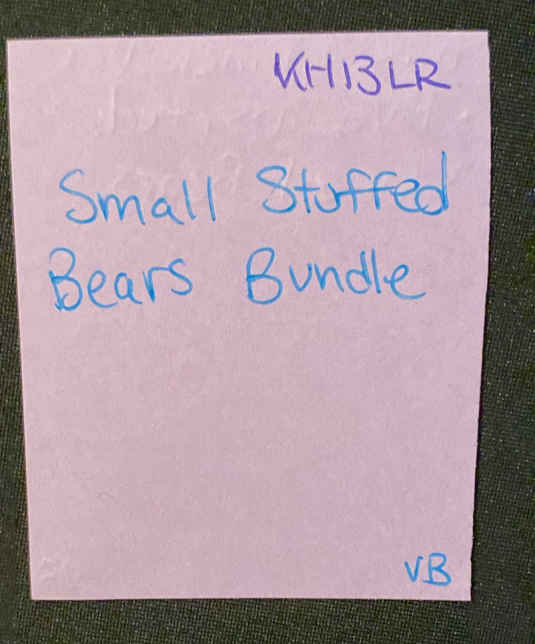 KH13LR
Small Stuffed
Bears Bundle
VB